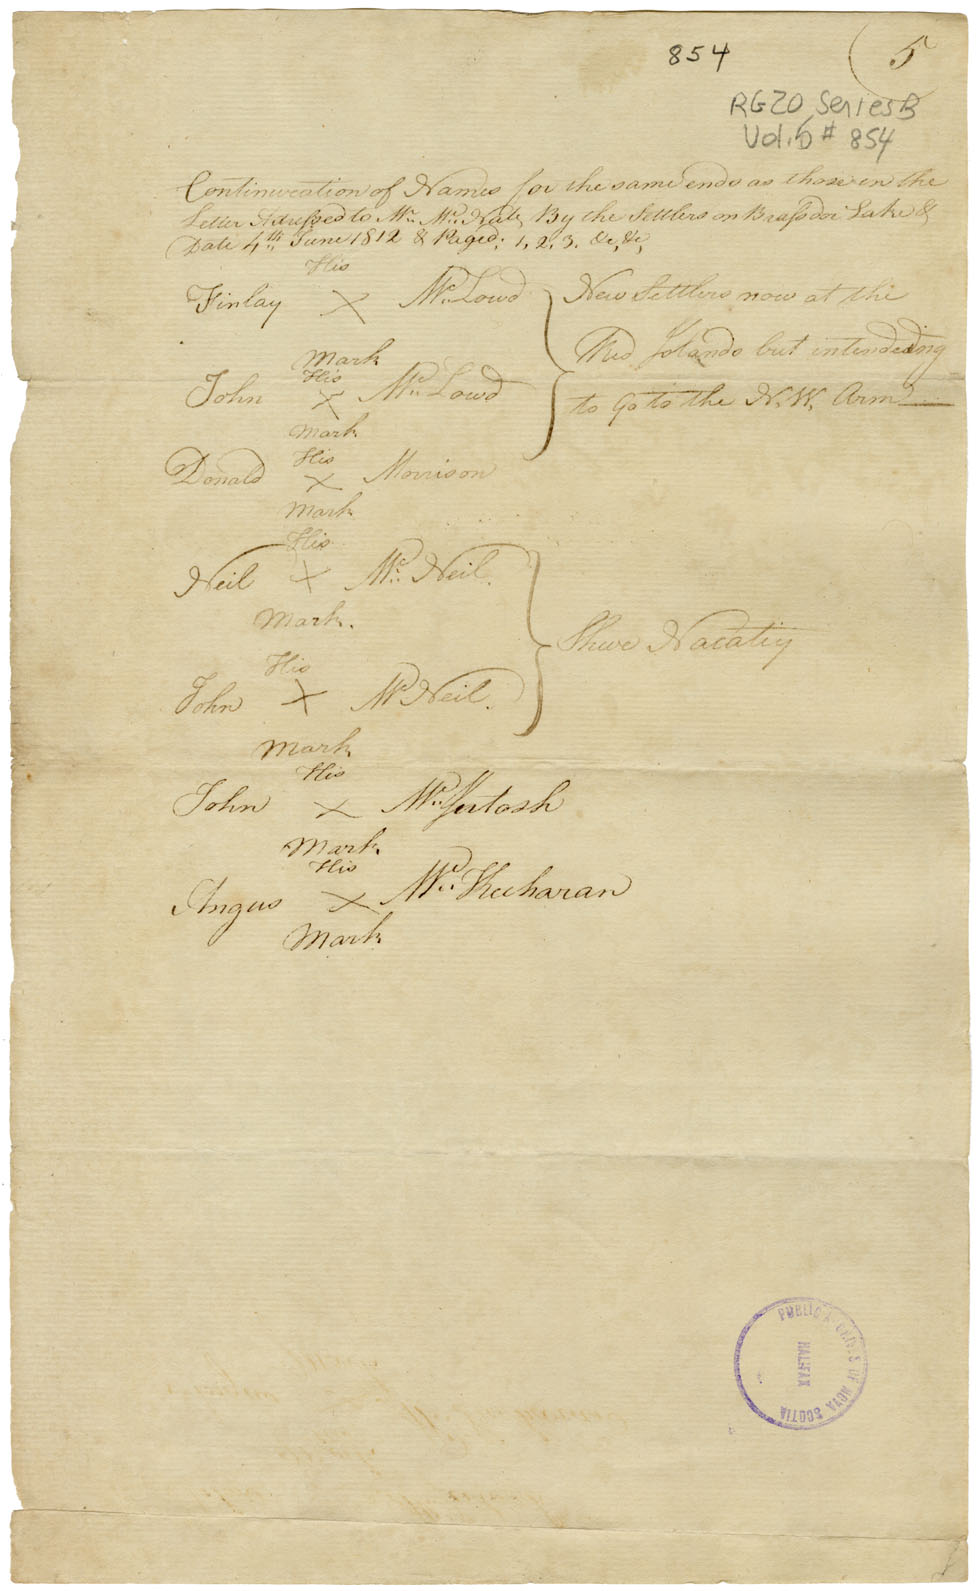 854
5
RG20 Series B
Vol. 5 # 854
Continuation of Names for the same ends as those in the
Letter Adressed to Mr. Mc. Nab, By the Settlers on Brassdor Lake &
Date 4th June 1812 & Paged; 1, 2, 3. &c, &c,
His
Finlay X Mc. Lowd New Settlers now at the
Mark Red Islands but intendeding
His
John X Mc. Lowd to Go to the N. W. Arm
Mark
His
Donald X Morrison
Mark
His
Neil X Mc. Neil.
Mark.
Nacatiy
His
John X Mc Neil.
Mark
His
John X Mc. Intosh
Mark
His
Angus X Mc. Keeharan
Mark
PUBLIC ARCHIVES OF NOVA SCOTIA
HALIFAX